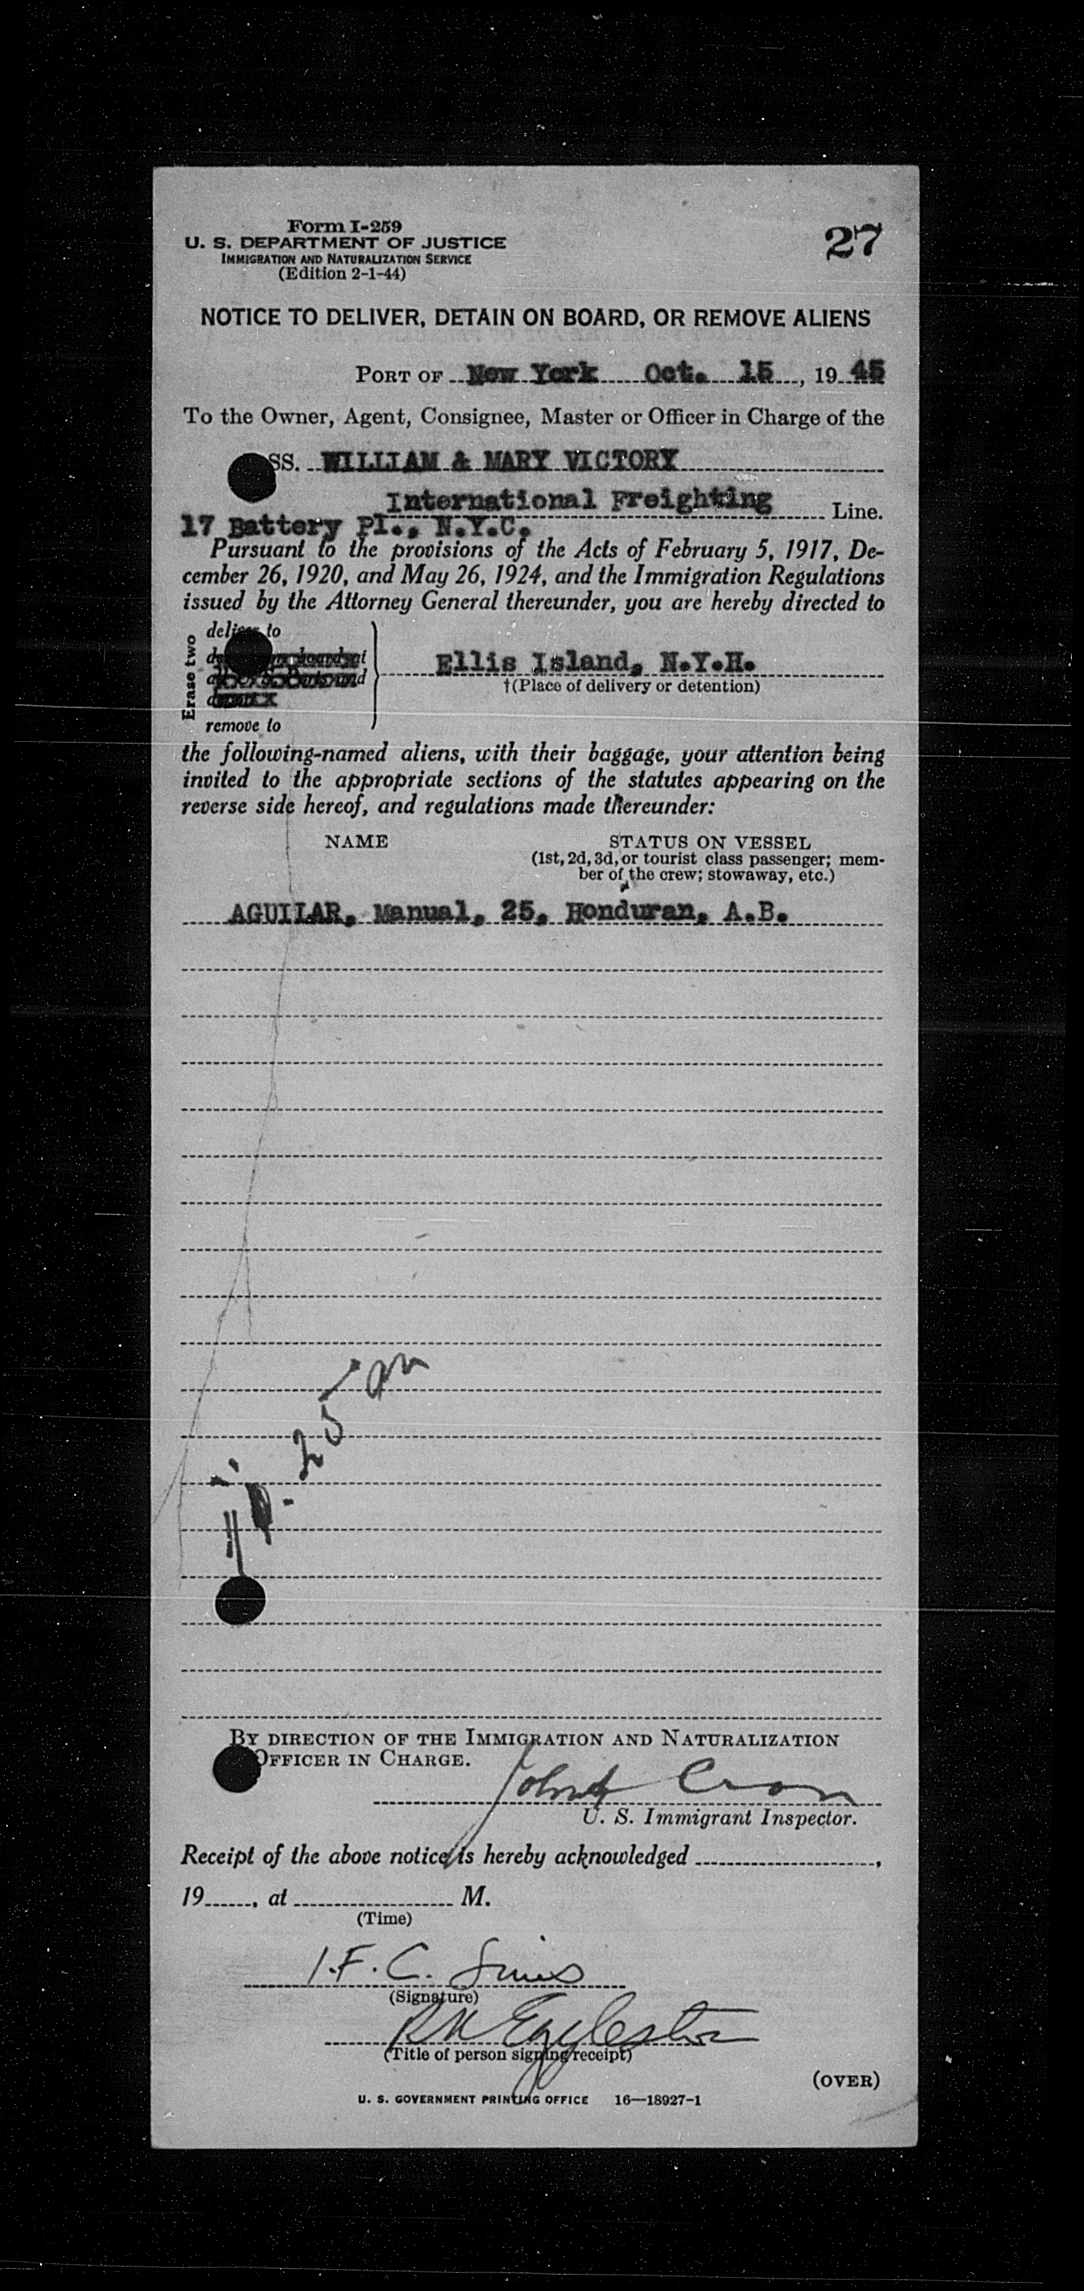 Form I-259
U. S. DEPARTMENT OF JUSTICE
IMMIGRATION AND NATURALIZATION SERVICE
(Edition 2-1-44)
27
NOTICE TO DELIVER, DETAIN ON BOARD, OR REMOVE ALIENS
PORT OF New York Oct. 15, 19 45
To the Owner, Agent, Consignee, Master or Officer in Charge of the
SS. WILLIAM & MARY VICTORY
International Freighting Line.
17 Battery Pl., N.Y.C.
Pursuant to the provisions of the Acts of February 5, 1917, De-
cember 26, 1920, and May 26, 1924, and the Immigration Regulations
issued by the Attorney General thereunder, you are hereby directed to
Erase two
deliver to
remove to
Ellis Island, N.Y.H.
†(Place of delivery or detention)
the following-named aliens, with their baggage, your attention being
invited to the appropriate sections of the statutes appearing on the
reverse side hereof, and regulations made thereunder:
NAME STATUS ON VESSEL
(1st, 2d, 3d, or tourist class passenger; mem-
ber of the crew; stowaway, etc.)
AGUILAR, Manual, 25, Honduran, A.B.
BY DIRECTION OF THE IMMIGRATION AND NATURALIZATION
OFFICER IN CHARGE.
U. S. Immigrant Inspector.
Receipt of the above notice is hereby acknowledged ,
19 , at M.
(Time)
(Signature)
(Title of person signing receipt)
(OVER)
U. S. GOVERNMENT PRINTING OFFICE 16—18927-1